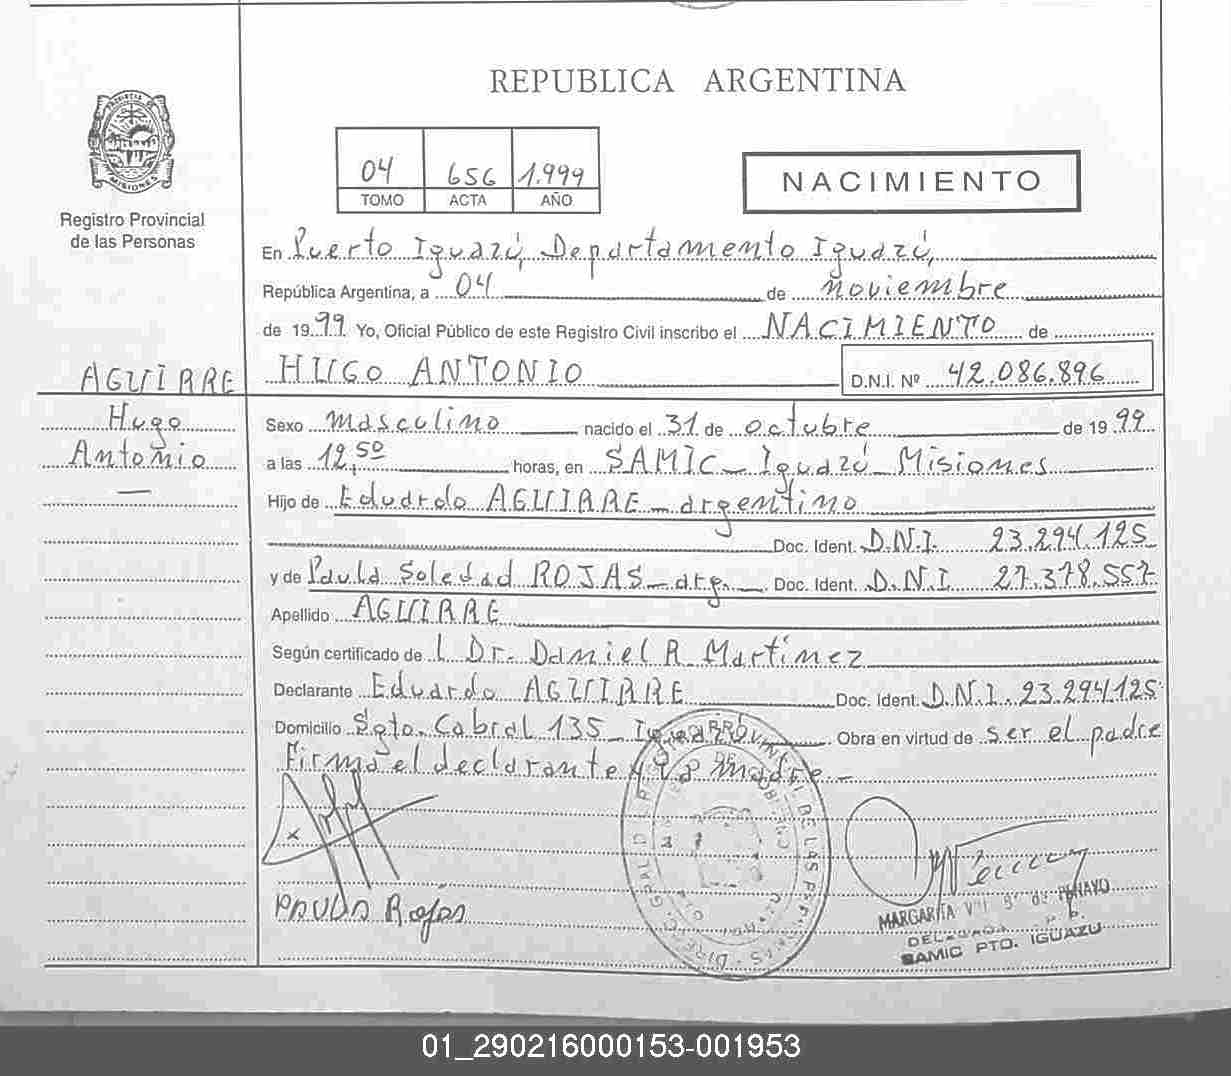 REPUBLICA ARGENTINA
PROVINCIA DE MISIONES
Registro Provincial
de las Personas
04 656 1.999
TOMO ACTA AÑO
NACIMIENTO
En Puerto Iguazú, Departamento Iguazú,
República Argentina, a 04 de noviembre
de 1999 Yo, Oficial Público de este Registro Civil inscribo el NACIMIENTO de
AGUIRRE
Hugo
Antonio
HUGO ANTONIO D.N.I. Nº 42.086.896
Sexo masculino nacido el 31 de octubre de 1999
a las 12,50 horas, en SAMIC - Iguazú - Misiones
Hijo de Eduardo AGUIRRE - argentino
Doc. Ident. D.N.I. 23.294.125
y de Paula Soledad ROJAS - arg. Doc. Ident. D.N.I. 27.378.557
Apellido AGUIRRE
Según certificado de l Dr. Daniel R. Martínez
Declarante Eduardo AGUIRRE Doc. Ident. D.N.I. 23.294.125
Domicilio Sgto. Cabral 135 - Iguazú Obra en virtud de ser el padre
Firma el declarante y la madre -
PAULA Rojas
MARGARITA
SAMIC PTO. IGUAZU
01_290216000153-001953